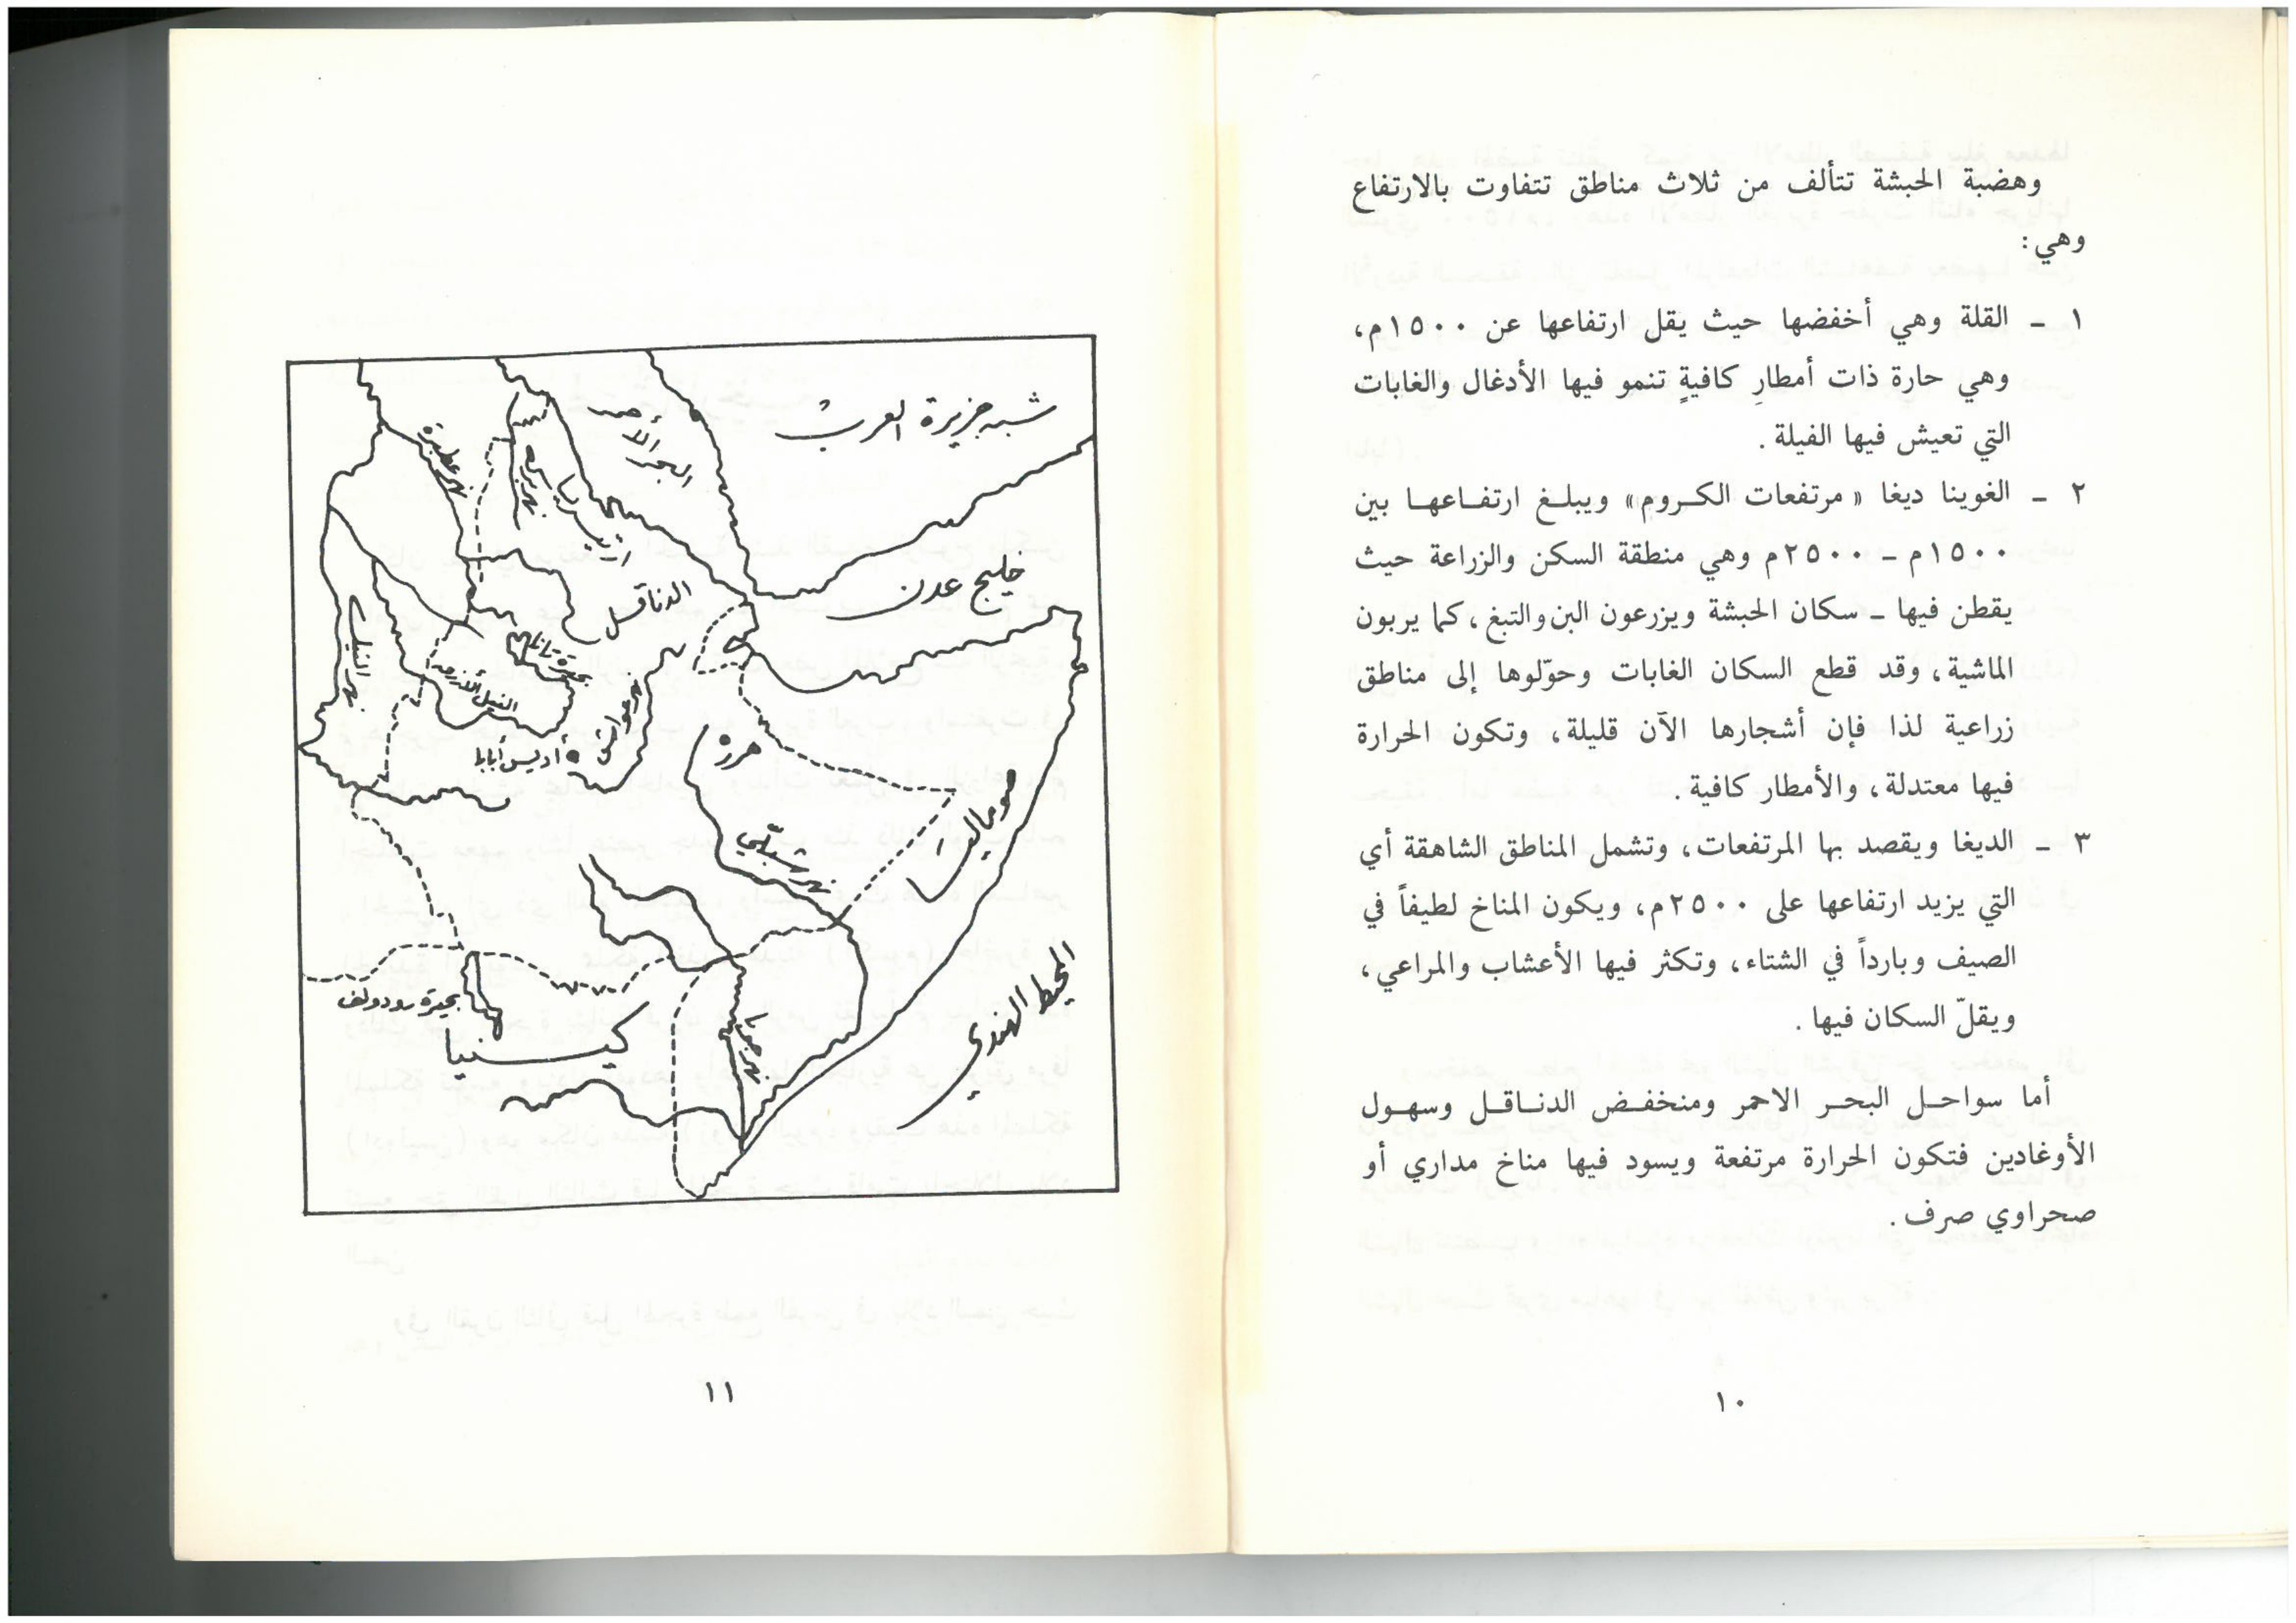 وهضبة الحبشة تتألف من ثلاث مناطق تتفاوت بالارتفاع
وهي:
١ ـ القلة وهي أخفضها حيث يقل ارتفاعها عن ١٥٠٠م،
وهي حارة ذات أمطارٍ كافيةٍ تنمو فيها الأدغال والغابات
التي تعيش فيها الفيلة.
٢ ـ الغوينا ديغا « مرتفعات الكـروم» ويبلـغ ارتفـاعهـا بين
١٥٠٠م ـ ٢٥٠٠م وهي منطقة السكن والزراعة حيث
يقطن فيها ـ سكان الحبشة ويزرعون البن والتبغ، كما يربون
الماشية، وقد قطع السكان الغابات وحوّلوها إلى مناطق
زراعية لذا فإن أشجارها الآن قليلة، وتكون الحرارة
فيها معتدلة، والأمطار كافية.
٣ ـ الديغا ويقصد بها المرتفعات، وتشمل المناطق الشاهقة أي
التي يزيد ارتفاعها على ٢٥٠٠م، ويكون المناخ لطيفاً في
الصيف وبارداً في الشتاء، وتكثر فيها الأعشاب والمراعي،
ويقلّ السكان فيها.
أما سواحـل البحـر الاحمر ومنخفـض الدنـاقـل وسهـول
الأوغادين فتكون الحرارة مرتفعة ويسود فيها مناخ مداري أو
صحراوي صرف.
١٠
شبه جزيرة العرب
البحر الأحمر
نهر عطبرة
نهر بركة
خليج عدن
الدناقل
بحيرة تانا
النيل الأزرق
نهر النيل
أديس أبابا
هرر
صوماليا
نهر شبيلي
المحيط الهندي
بحيرة رودولف
كينيا
١١